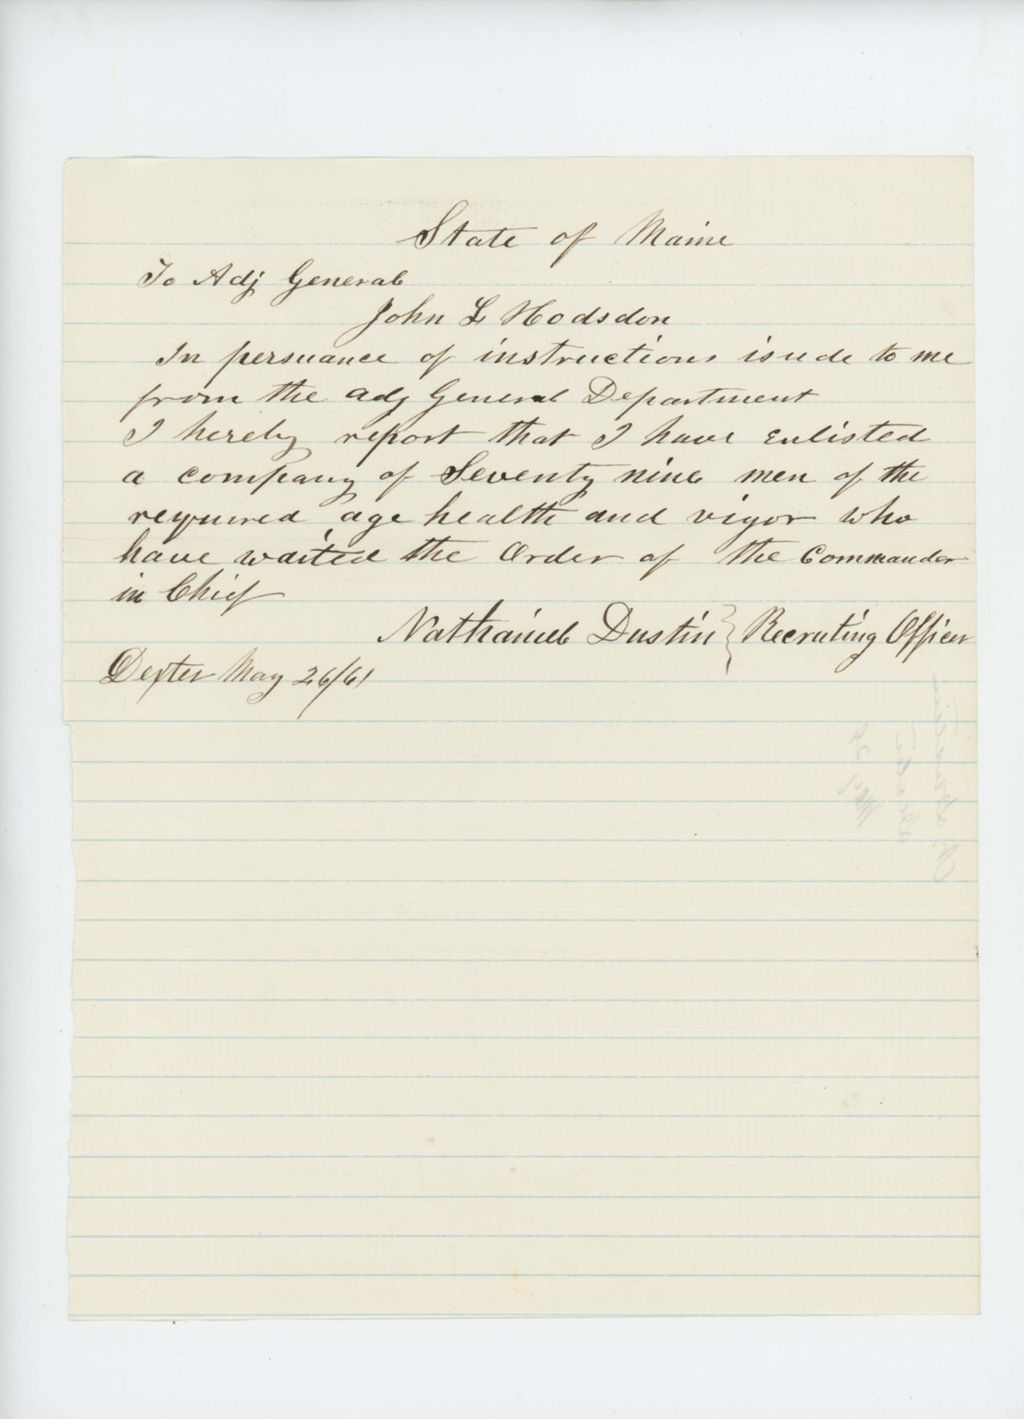 State of Maine
To Adj General
John L Hodsdon
In persuance of instructions isude to me
from the adj General Department
I hereby report that I have Enlisted
a company of Seventy nine men of the
reqwired age health and vigor who
have waited the Order of the Commander
in Chief
Nathaniel Dustin } Recruting Officer
Dexter May 26/61